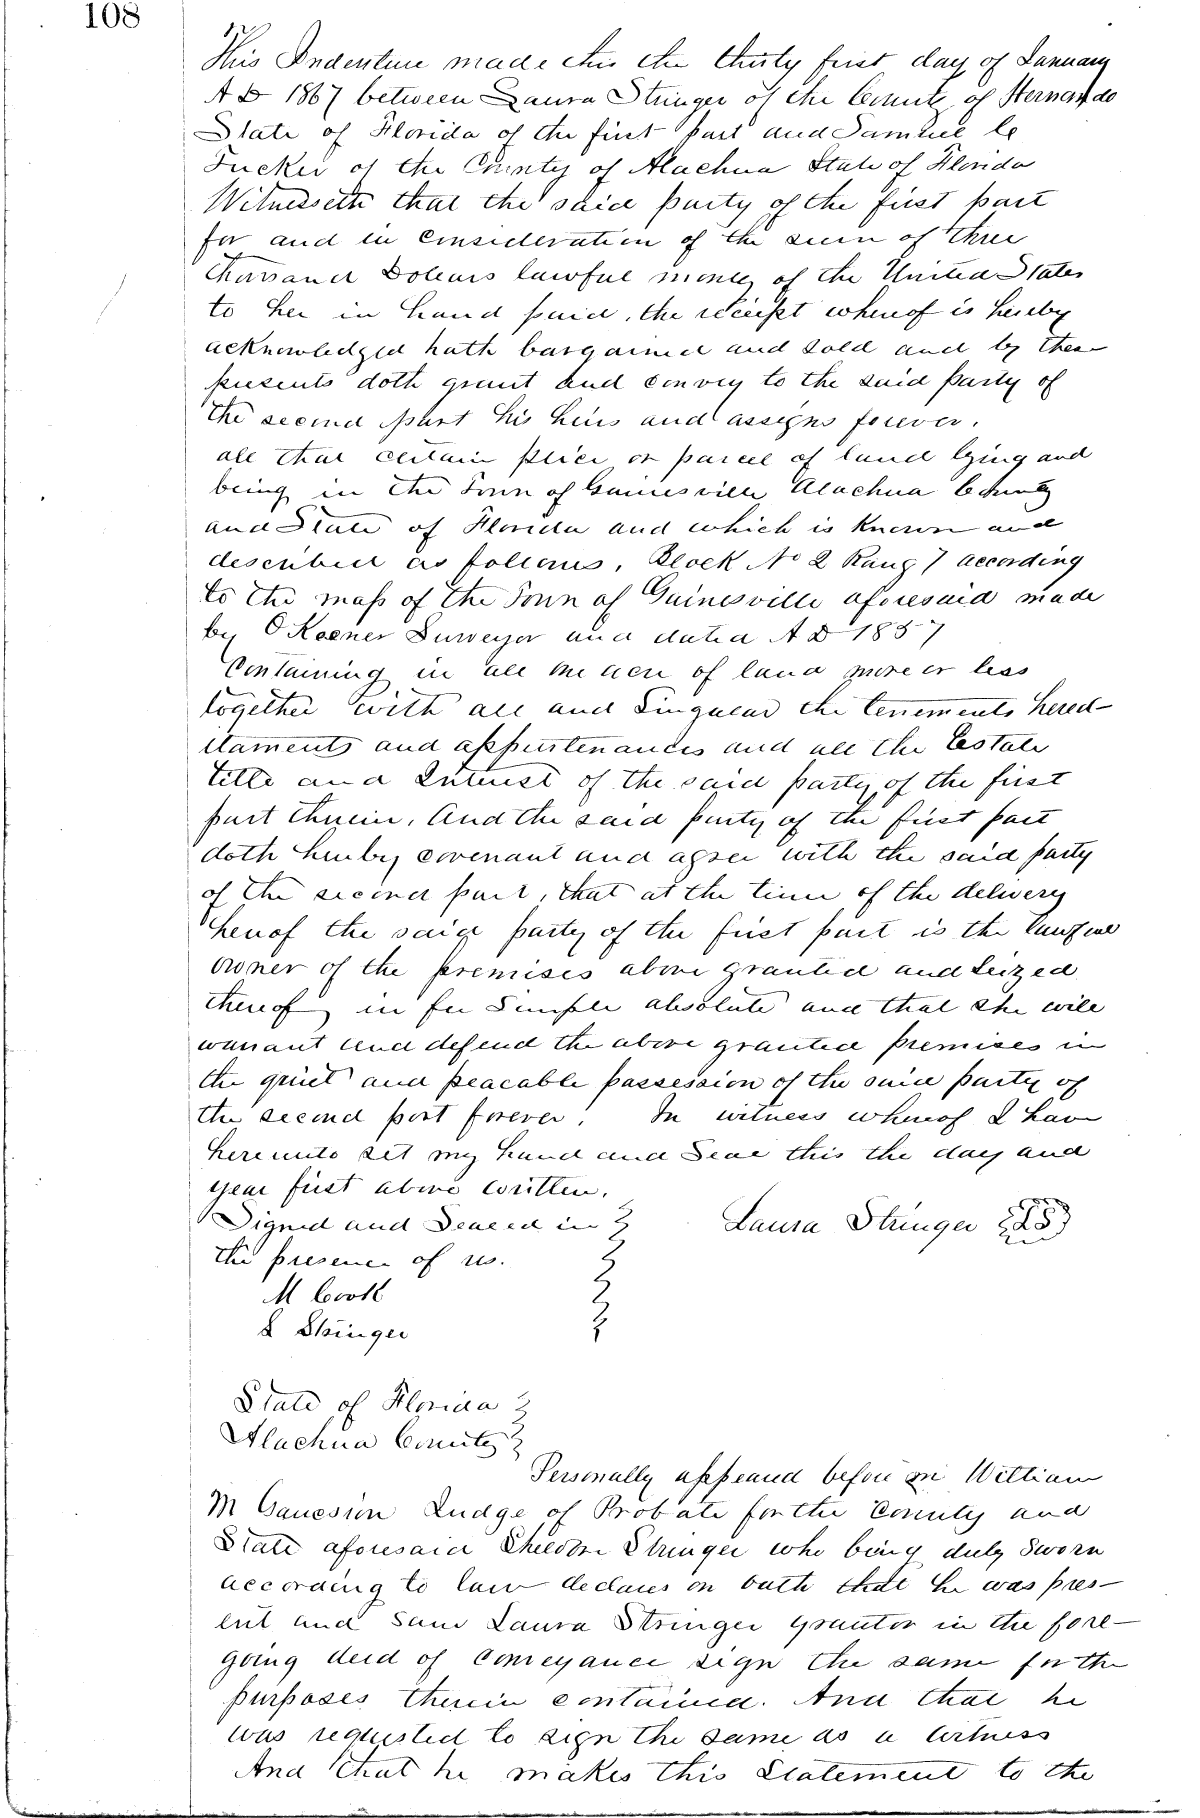 108
This Indenture made this the thirty first day of January
A D 1867 between Laura Stringer of the County of Hernando
State of Florida of the first part and Samuel C
Tucker of the County of Alachua State of Florida
Witnesseth that the said party of the first part
for and in consideration of the sum of three
thousand Dollars lawful money of the United States
to her in hand paid, the receipt whereof is hereby
acknowledged hath bargained and sold and by these
presents doth grant and convey to the said party of
the second part his heirs and assigns forever.
all that certain piece or parcel of land lying and
being in the Town of Gainesville Alachua County
and State of Florida and which is known and
described as follows, Block No 2 Rang 7 according
to the map of the Town of Gainesville aforesaid made
by Surveyor and dated A D 1857
Containing in all one acre of land more or less
together with all and Singular the tenements hered-
itaments and appurtenances and all the Estate
title and Interest of the said party of the first
part therein. And the said party of the first part
doth hereby covenant and agree with the said party
of the second part, that at the time of the delivery
hereof the said party of the first part is the lawful
owner of the premises above granted and Seized
thereof in fee Simple absolute and that she will
warrant and defend the above granted premises in
the quiet and peacable possession of the said party of
the second part forever. In witness whereof I have
hereunto set my hand and Seal this the day and
year first above written.
Signed and Sealed in Laura Stringer LS
the presence of us.
M Cook
S Stringer
State of Florida
Alachua County
Personally appeared before me William
M Judge of Probate for the County and
State aforesaid Sheldon Stringer who being duly Sworn
according to law declares on oath that he was pres-
ent and Saw Laura Stringer grantor in the fore-
going deed of conveyance sign the same for the
purposes therein contained. And that he
was requested to sign the same as a witness
And that he makes this Statement to the